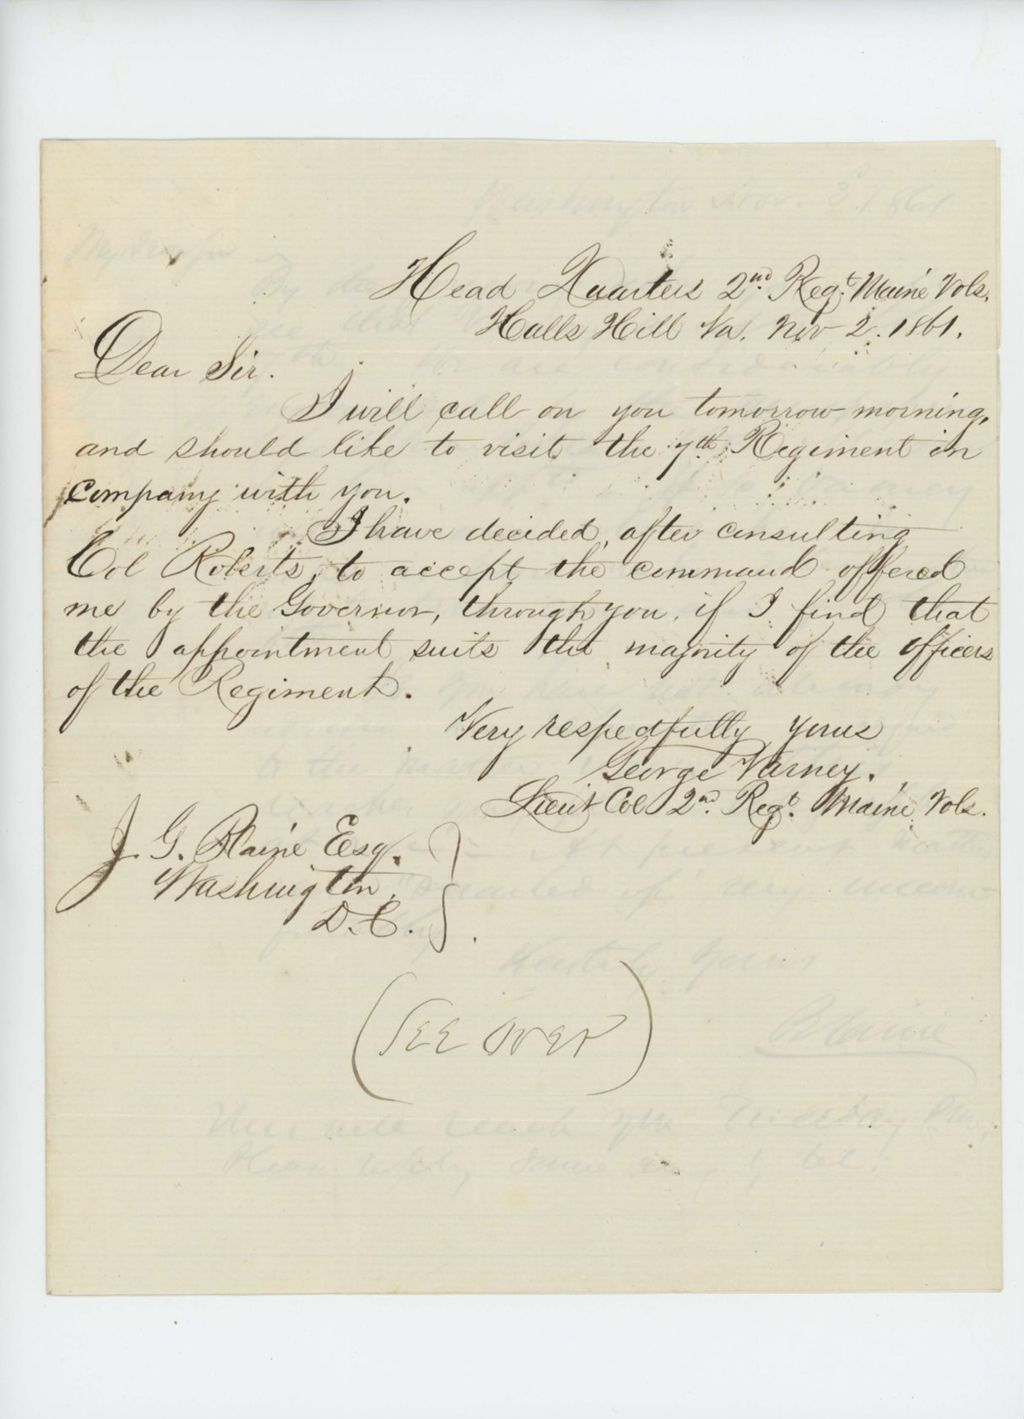 Head Quarters 2nd Regt Maine Vols.
Halls Hill Va. Nov 2. 1861.
Dear Sir.
I will call on you tomorrow morning,
and should like to visit the 7th Regiment in
company with you.
I have decided, after consulting
Col Roberts, to accept the command offered
me by the Governor, through you, if I find that
the appointment suits the majority of the officers
of the Regiment.
Very respectfully yours
George Varney.
Lieut Col 2nd Regt. Maine Vols.
J. G. Blaine Esq.
Washington,
D.C.
(SEE OVER)